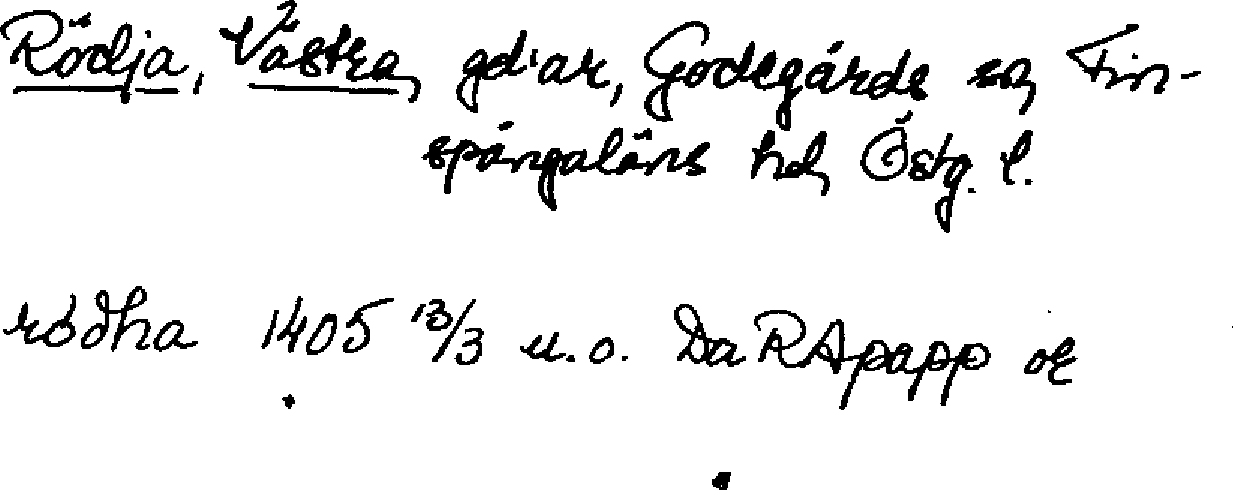 Rödja, Västra, gd'ar, Godegårds sn, Fin-
spångaläns hd, Östg. l.
rödha 1405 13/3 u.o. Da RApapp or